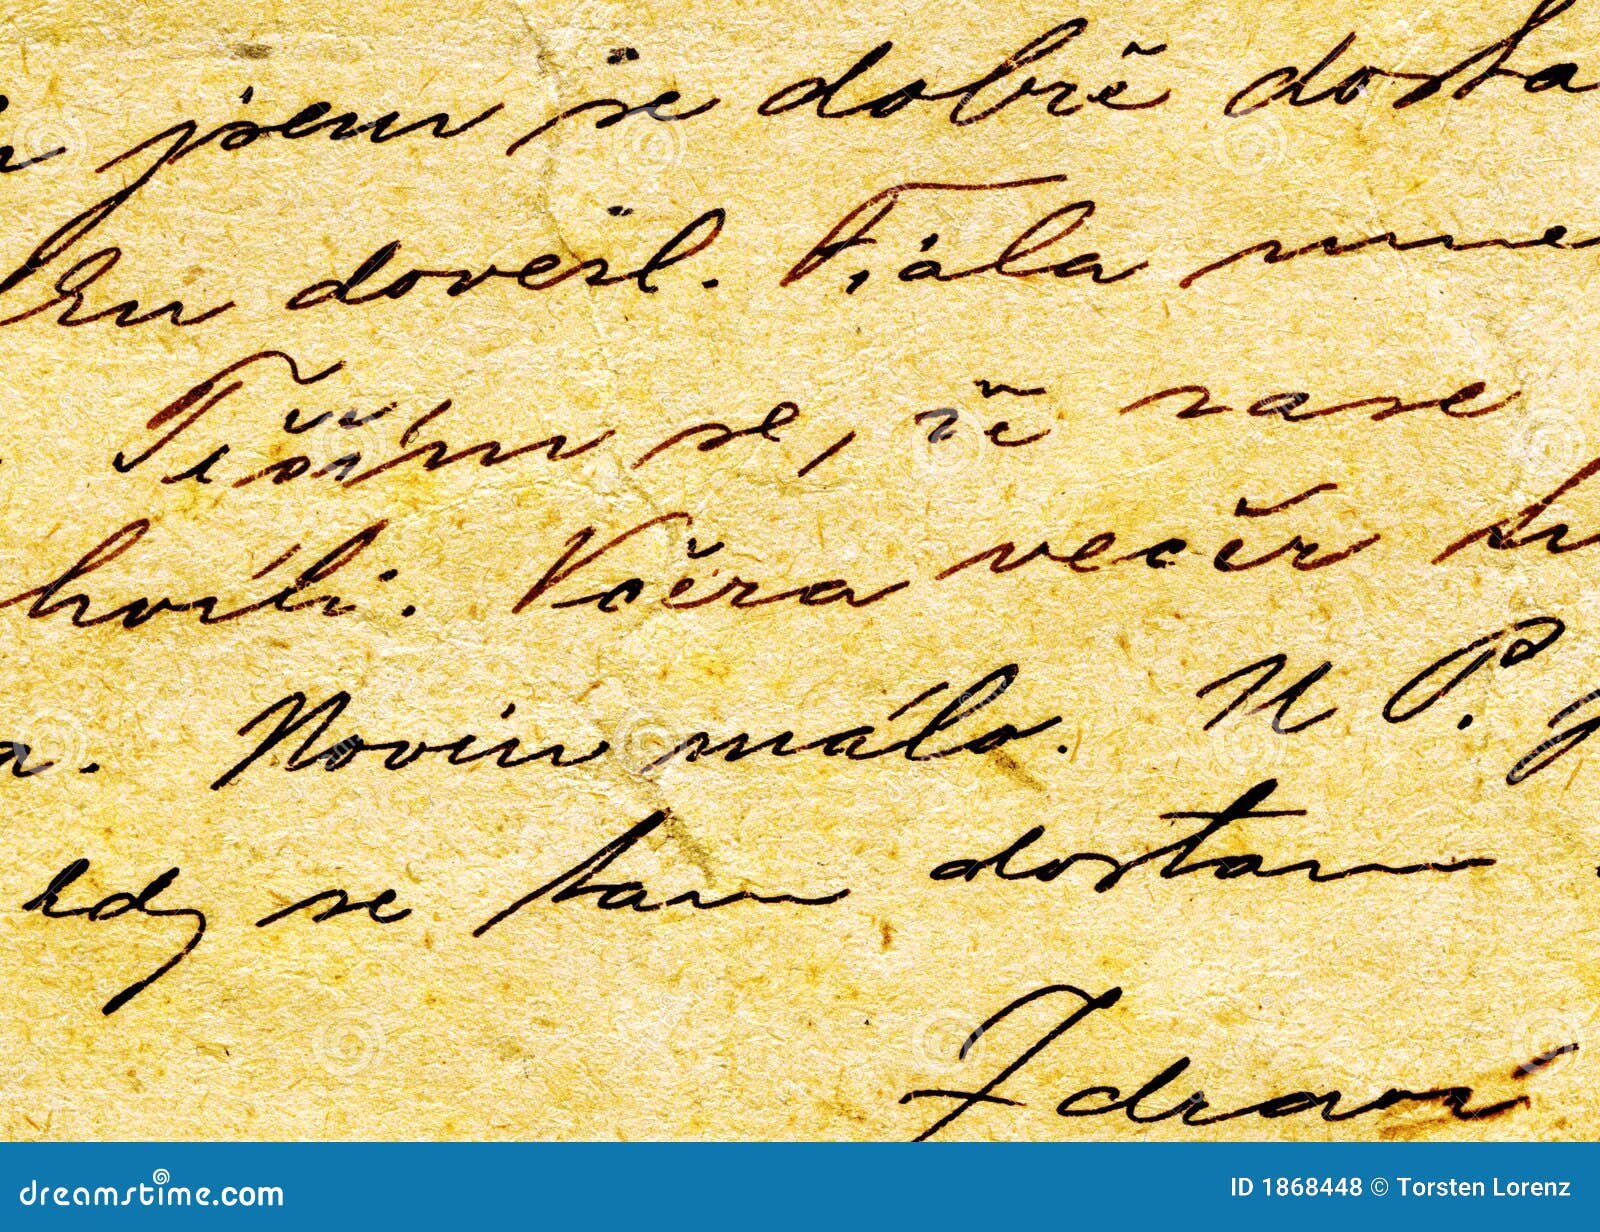 jsem se dobře dosta
dovezl. Fiala mne
Těším se, že zase
Včera večer
a. Novin málo. U P.
kdy se tam dostanu
Zdraví
dreamstime.com
ID 1868448 © Torsten Lorenz